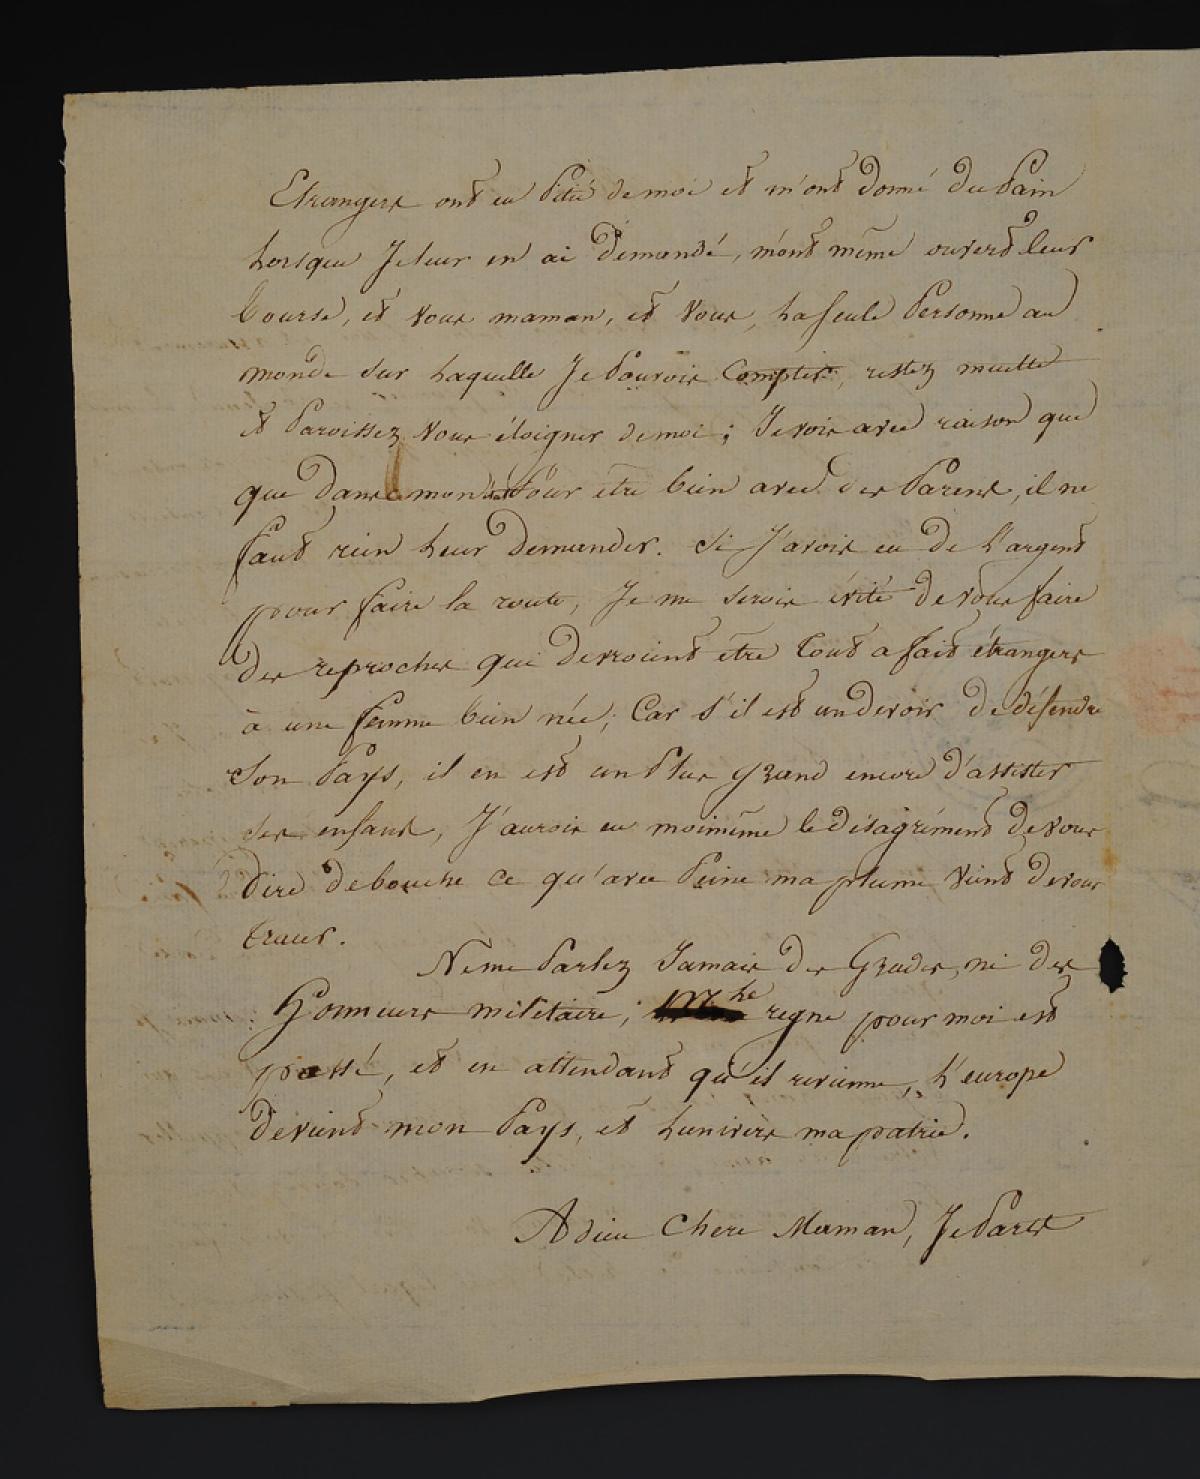 Etrangers ont eu Pitié de moi et m'ont donné du Pain
lorsque Je leur en ai demandé, m'ont même ouvert leur
bourse, et vous maman, et vous, la seule Personne au
monde sur laquelle Je Pouvois Compter, restez muette
et Paroissez vous éloigner de moi; Je vois avec raison que
que dans mon Pour etre bien avec des Parens, il ne
faut rien leur demander. Si J'avois eu de l'argent
pour faire la route, Je me serois évité de vous faire
des reproches qui devroient être tout a fait étrangers
à une femme bien née; Car s'il est un devoir de défendre
son Pays, il en est un Plus grand encore d'assister
ses enfans, J'aurois eu moimême le désagrément de vous
dire de bouche ce qu'avec Peine ma plume vient de vous
tracer.
Ne me Parlez Jamais des Grades, ni des
Honneurs militaire; le regne pour moi est
passé, et en attendant qu'il revienne, l'europe
devient mon Pays, et l'univers ma patrie.
Adieu Chere Maman, Je Pars